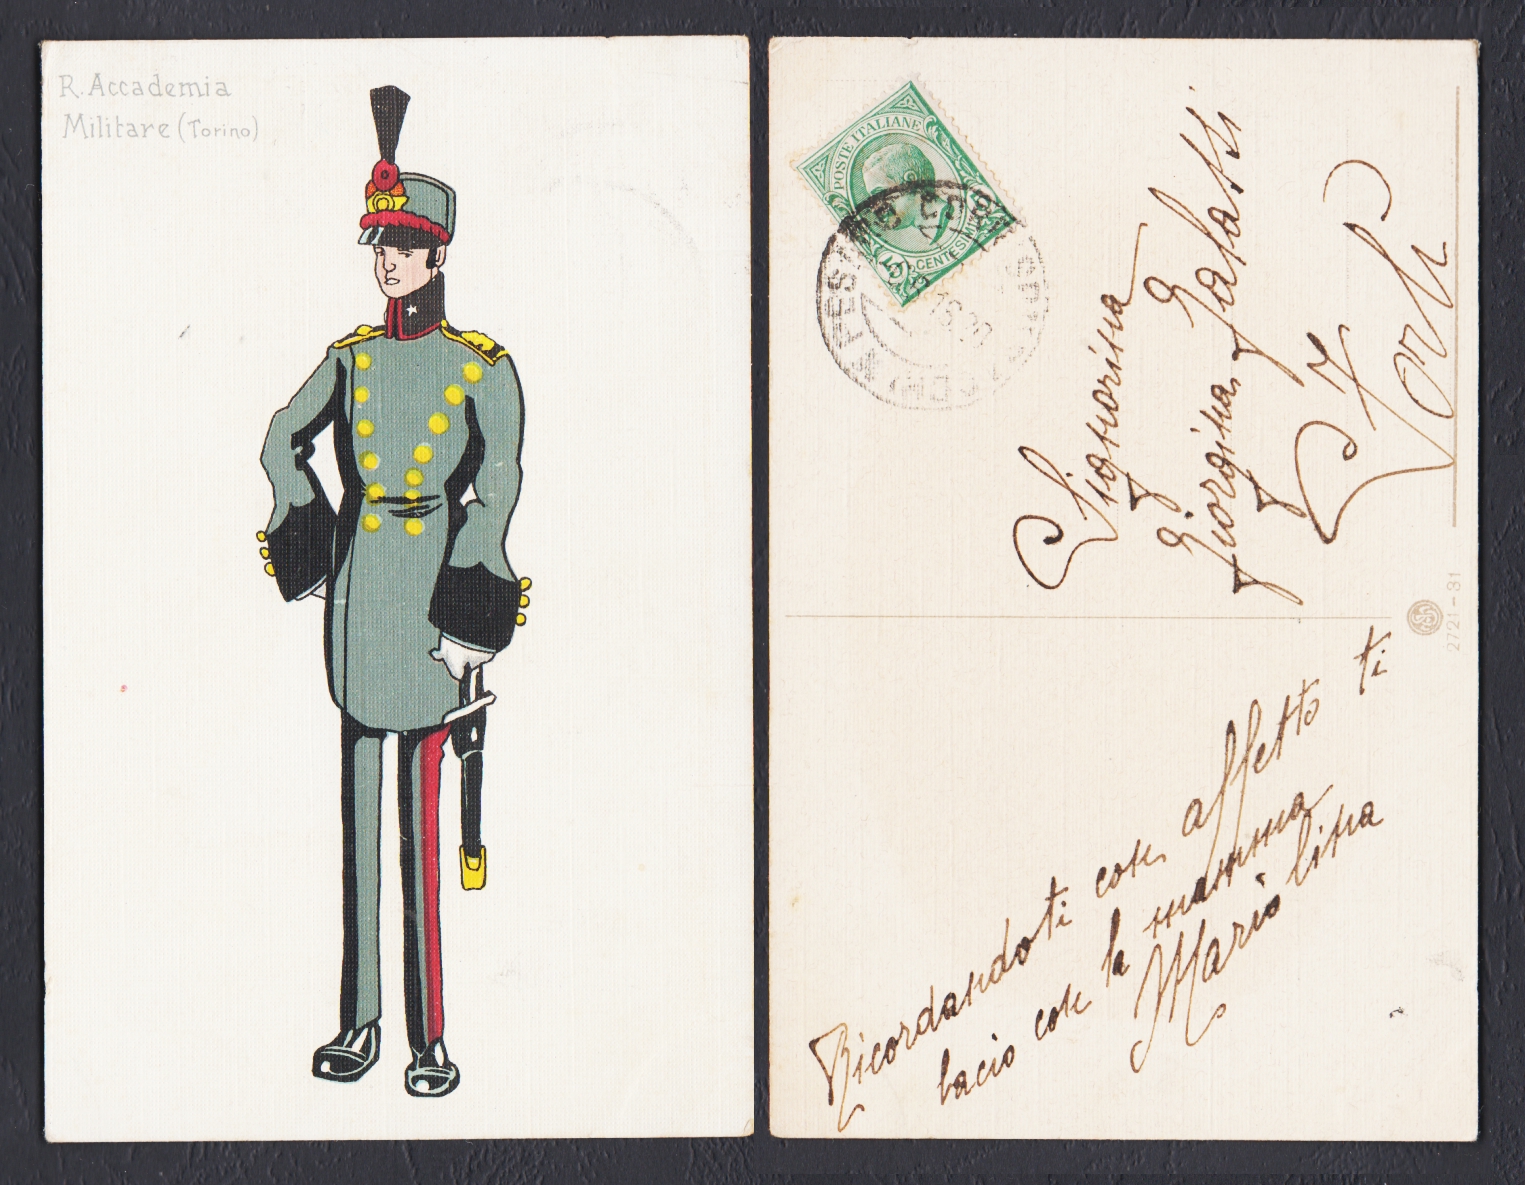 R. Accademia
Militare (Torino)
POSTE ITALIANE
CENTESIMI
Signorina
Giorgina Galassi
Forlì
2721-31
Ricordandoti con affetto ti
bacio con la mamma
Mariolina